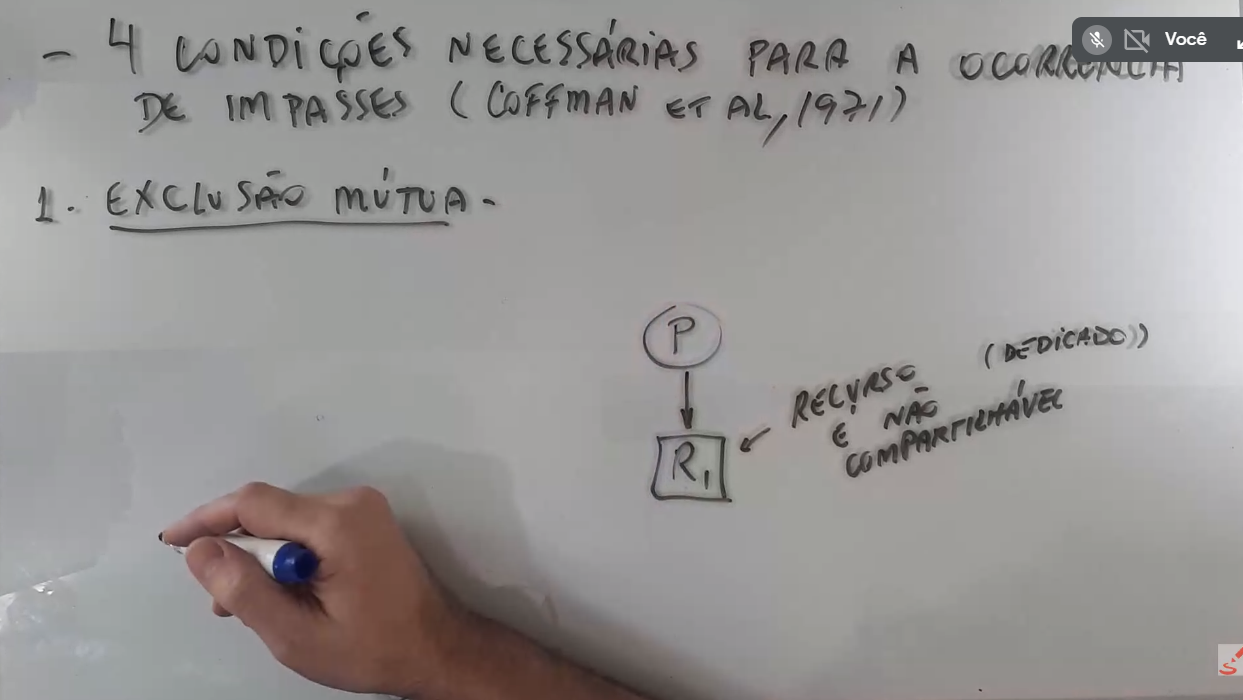 - 4 CONDIÇÕES NECESSÁRIAS PARA A OCORRÊNCIA
DE IMPASSES (COFFMAN ET AL, 1971)
1. EXCLUSÃO MÚTUA -
P
R1
RECURSO (DEDICADO))
E NÃO
COMPARTILHÁVEL
Você